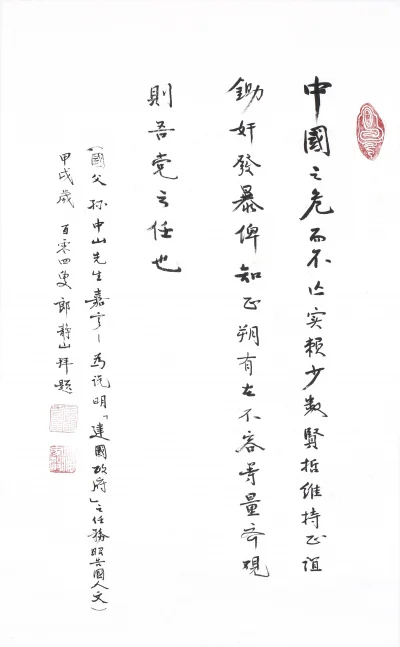 中國之危而不亡实賴少数賢哲維持正誼
鋤奸發暴俾知正朔有在不容等量齐观
則吾党之任也
(國父孫中山先生嘉言—為说明「建國政府」之任務昭告國人文)
甲戌歲 百零四叟郎静山拜題